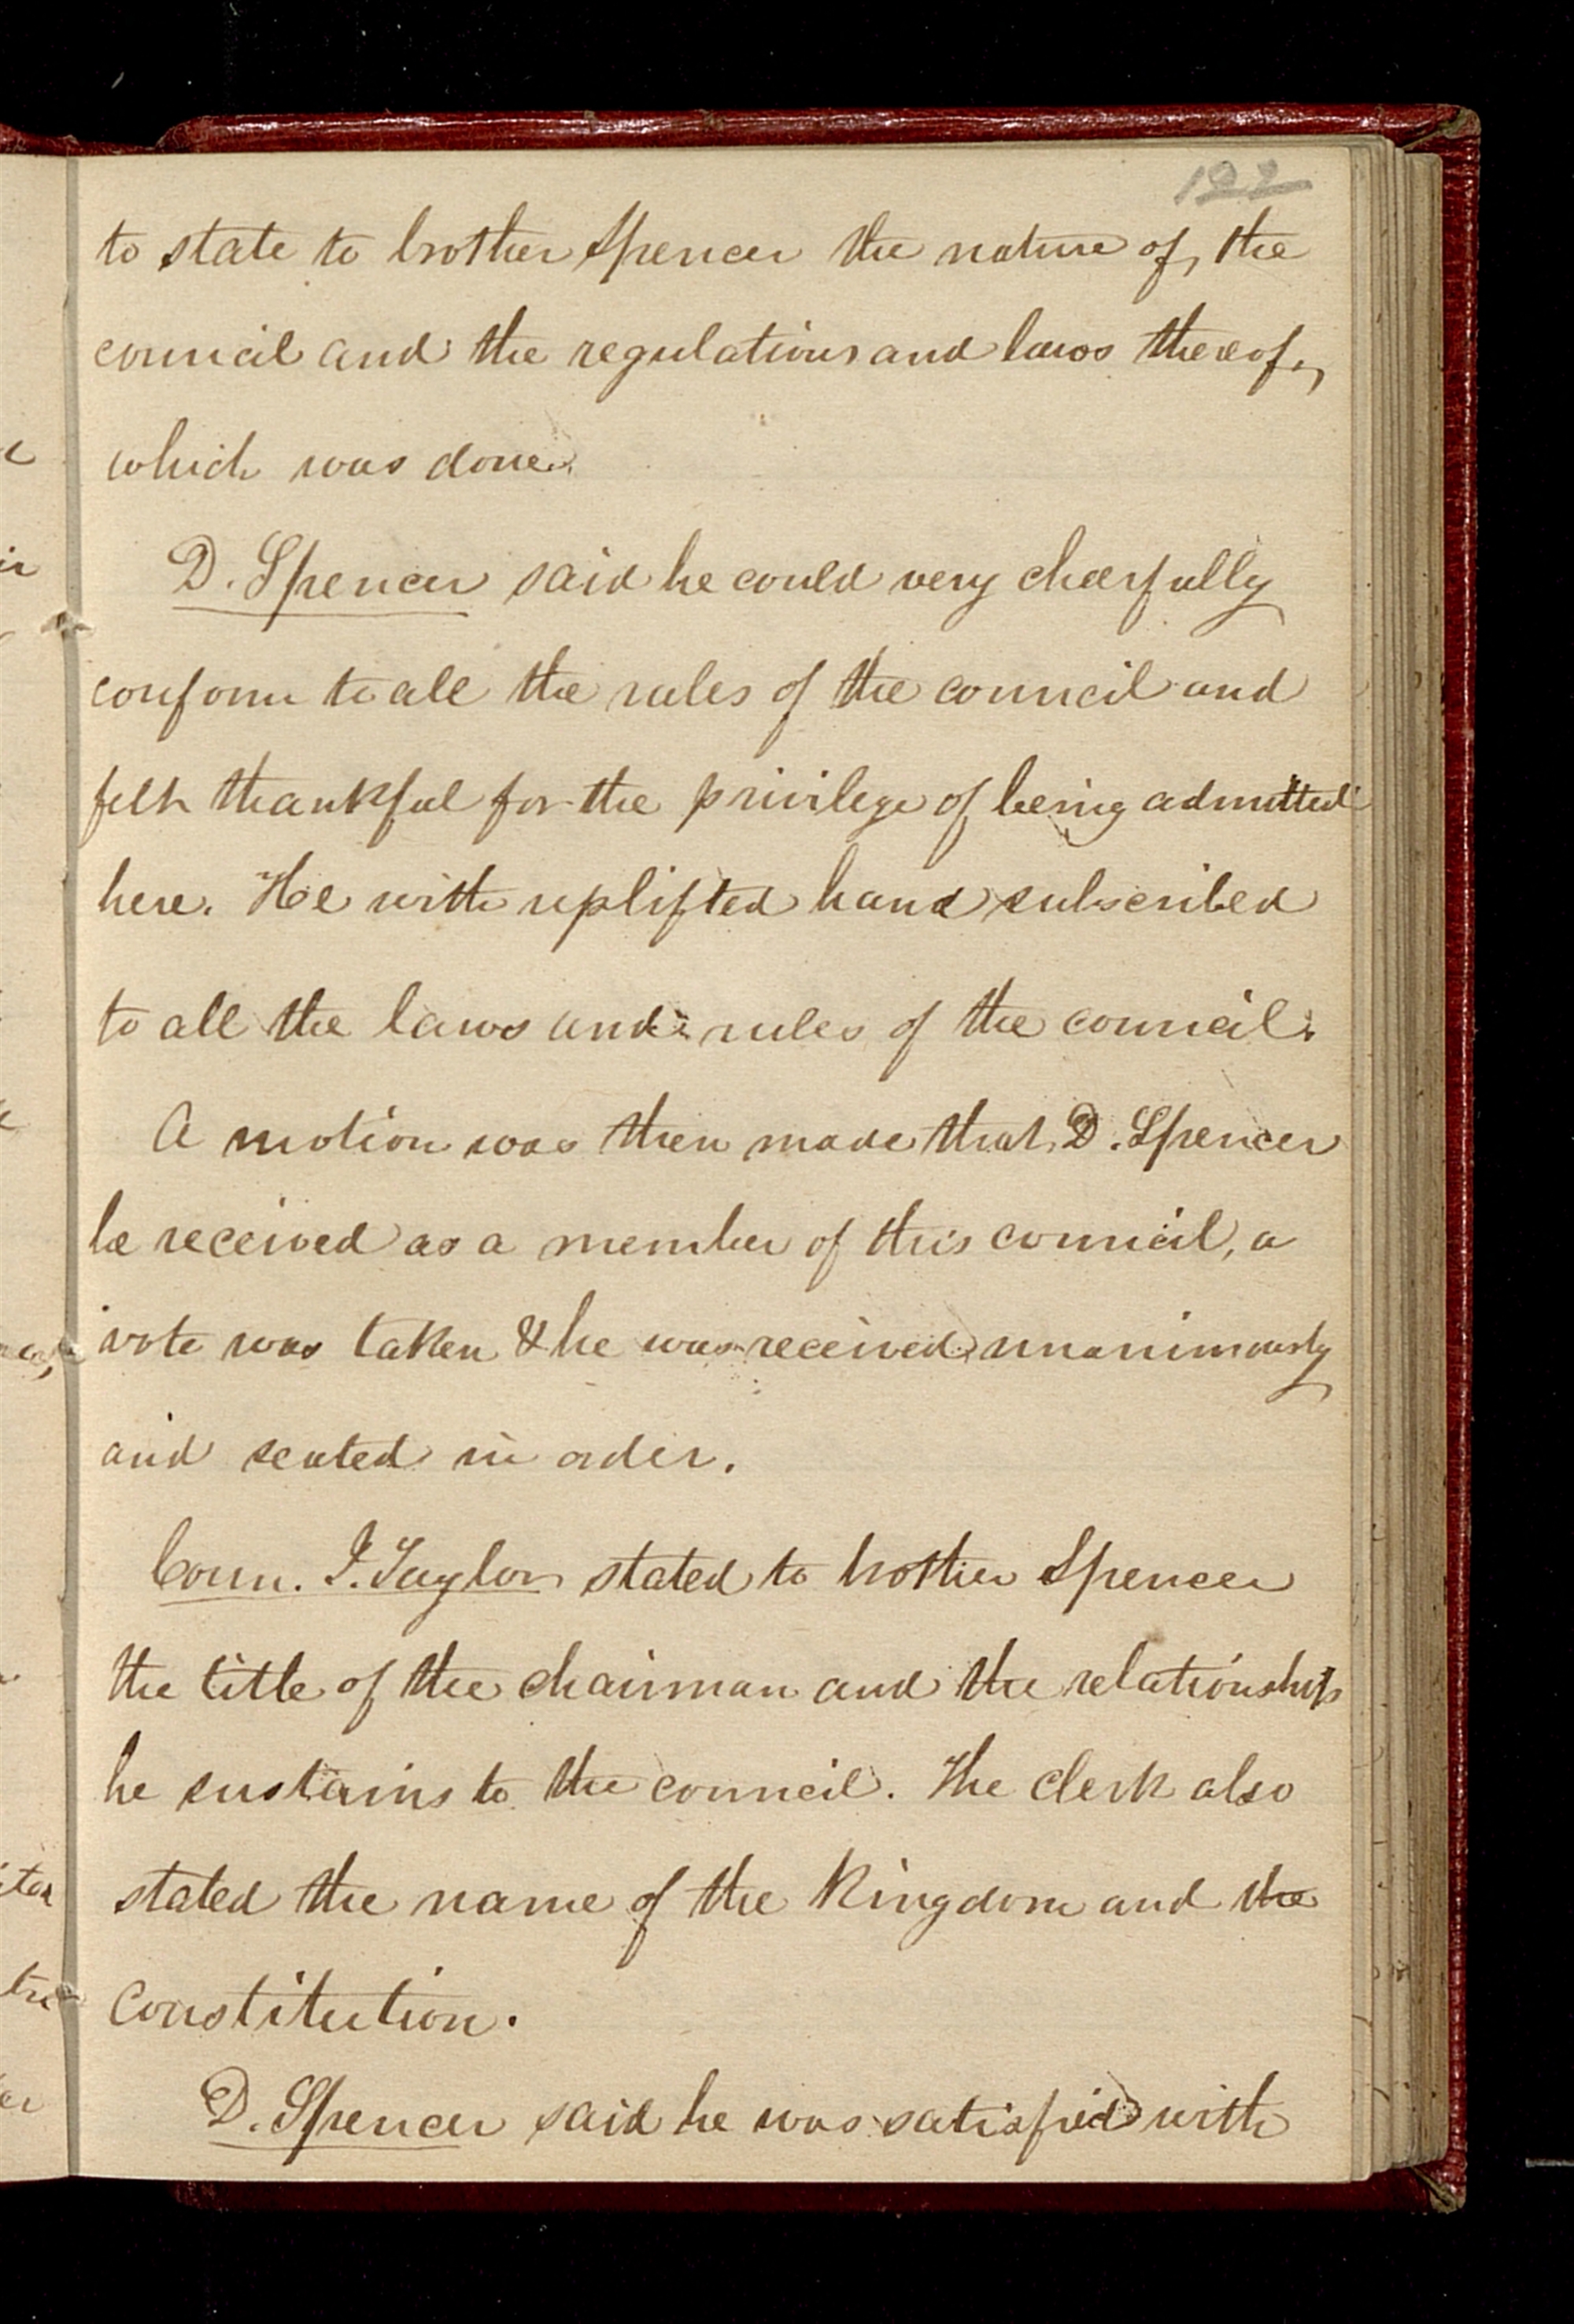 122
to state to brother Spencer the nature of, the
council and the regulations and laws thereof,
which was done.
D. Spencer said he could very cheerfully
conform to all the rules of the council and
felt thankful for the privilege of being admitted
here. He with uplifted hand subscribed
to all the laws and rules of the council.
A motion was then made that D. Spencer
be received as a member of this council, a
vote was taken & he was received unanimously
and seated in order.
Coun. J. Taylor stated to brother Spencer
the title of the chairman and the relationship
he sustains to the council. The clerk also
stated the name of the Kingdom and the
constitution.
D. Spencer said he was satisfied with